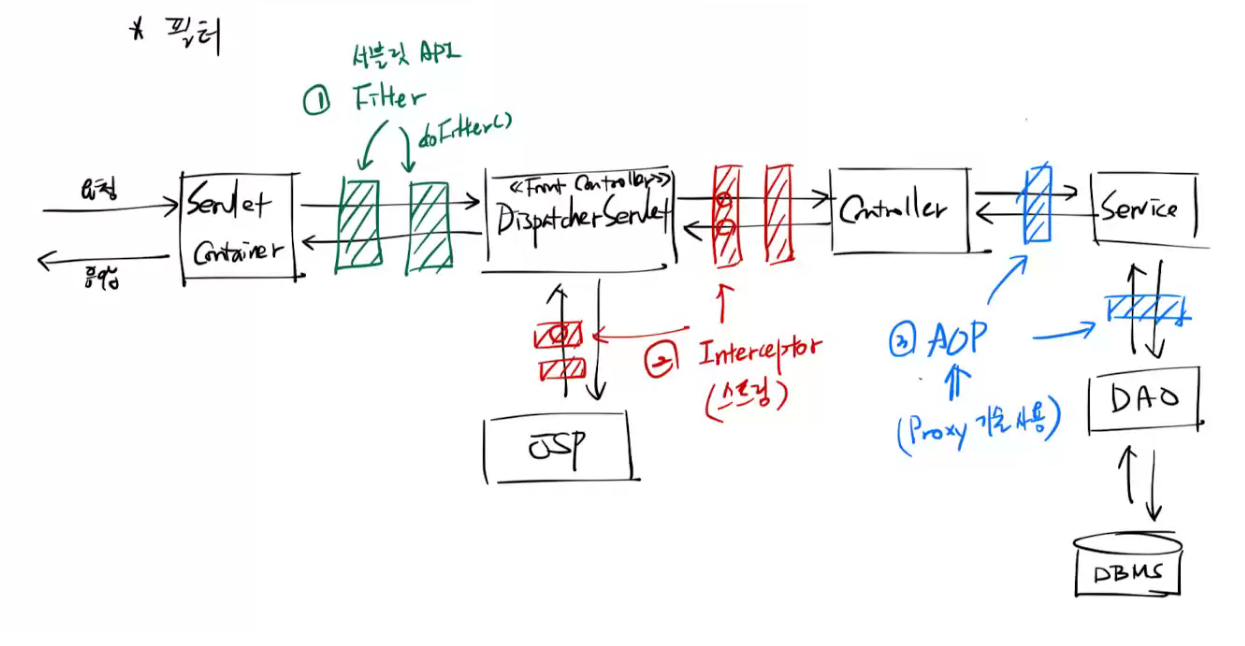 * 필터
서블릿 API
① Filter
doFilter()
요청
응답
Servlet
Container
<<Front Controller>>
DispatcherServlet
Controller
Service
② Interceptor
(스프링)
③ AOP
(Proxy 기술 사용)
JSP
DAO
DBMS